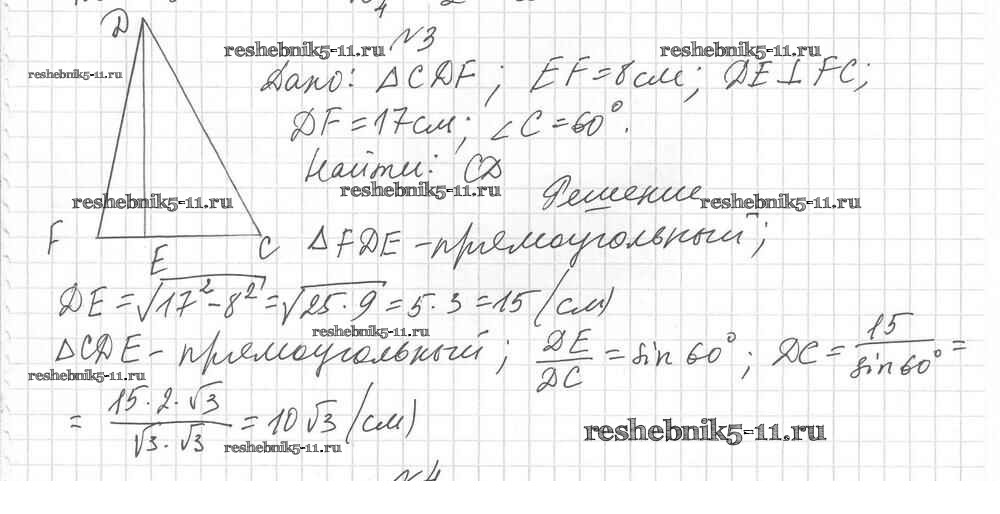 D
№3
reshebnik5-11.ru
reshebnik5-11.ru
reshebnik5-11.ru
Дано: △CDF; EF=8см; DE⊥FC;
DF=17см; ∠C=60°.
Найти: CD
reshebnik5-11.ru
reshebnik5-11.ru
Решение
reshebnik5-11.ru
F
E
C
△FDE-прямоугольный;
DE=√(17²-8²)=√(25·9)=5·3=15(см)
reshebnik5-11.ru
△CDE-прямоугольный; DE/DC=sin60°; DC=15/sin60°=
reshebnik5-11.ru
=15·2·√3/√3·√3=10√3(см)
reshebnik5-11.ru
reshebnik5-11.ru
№4